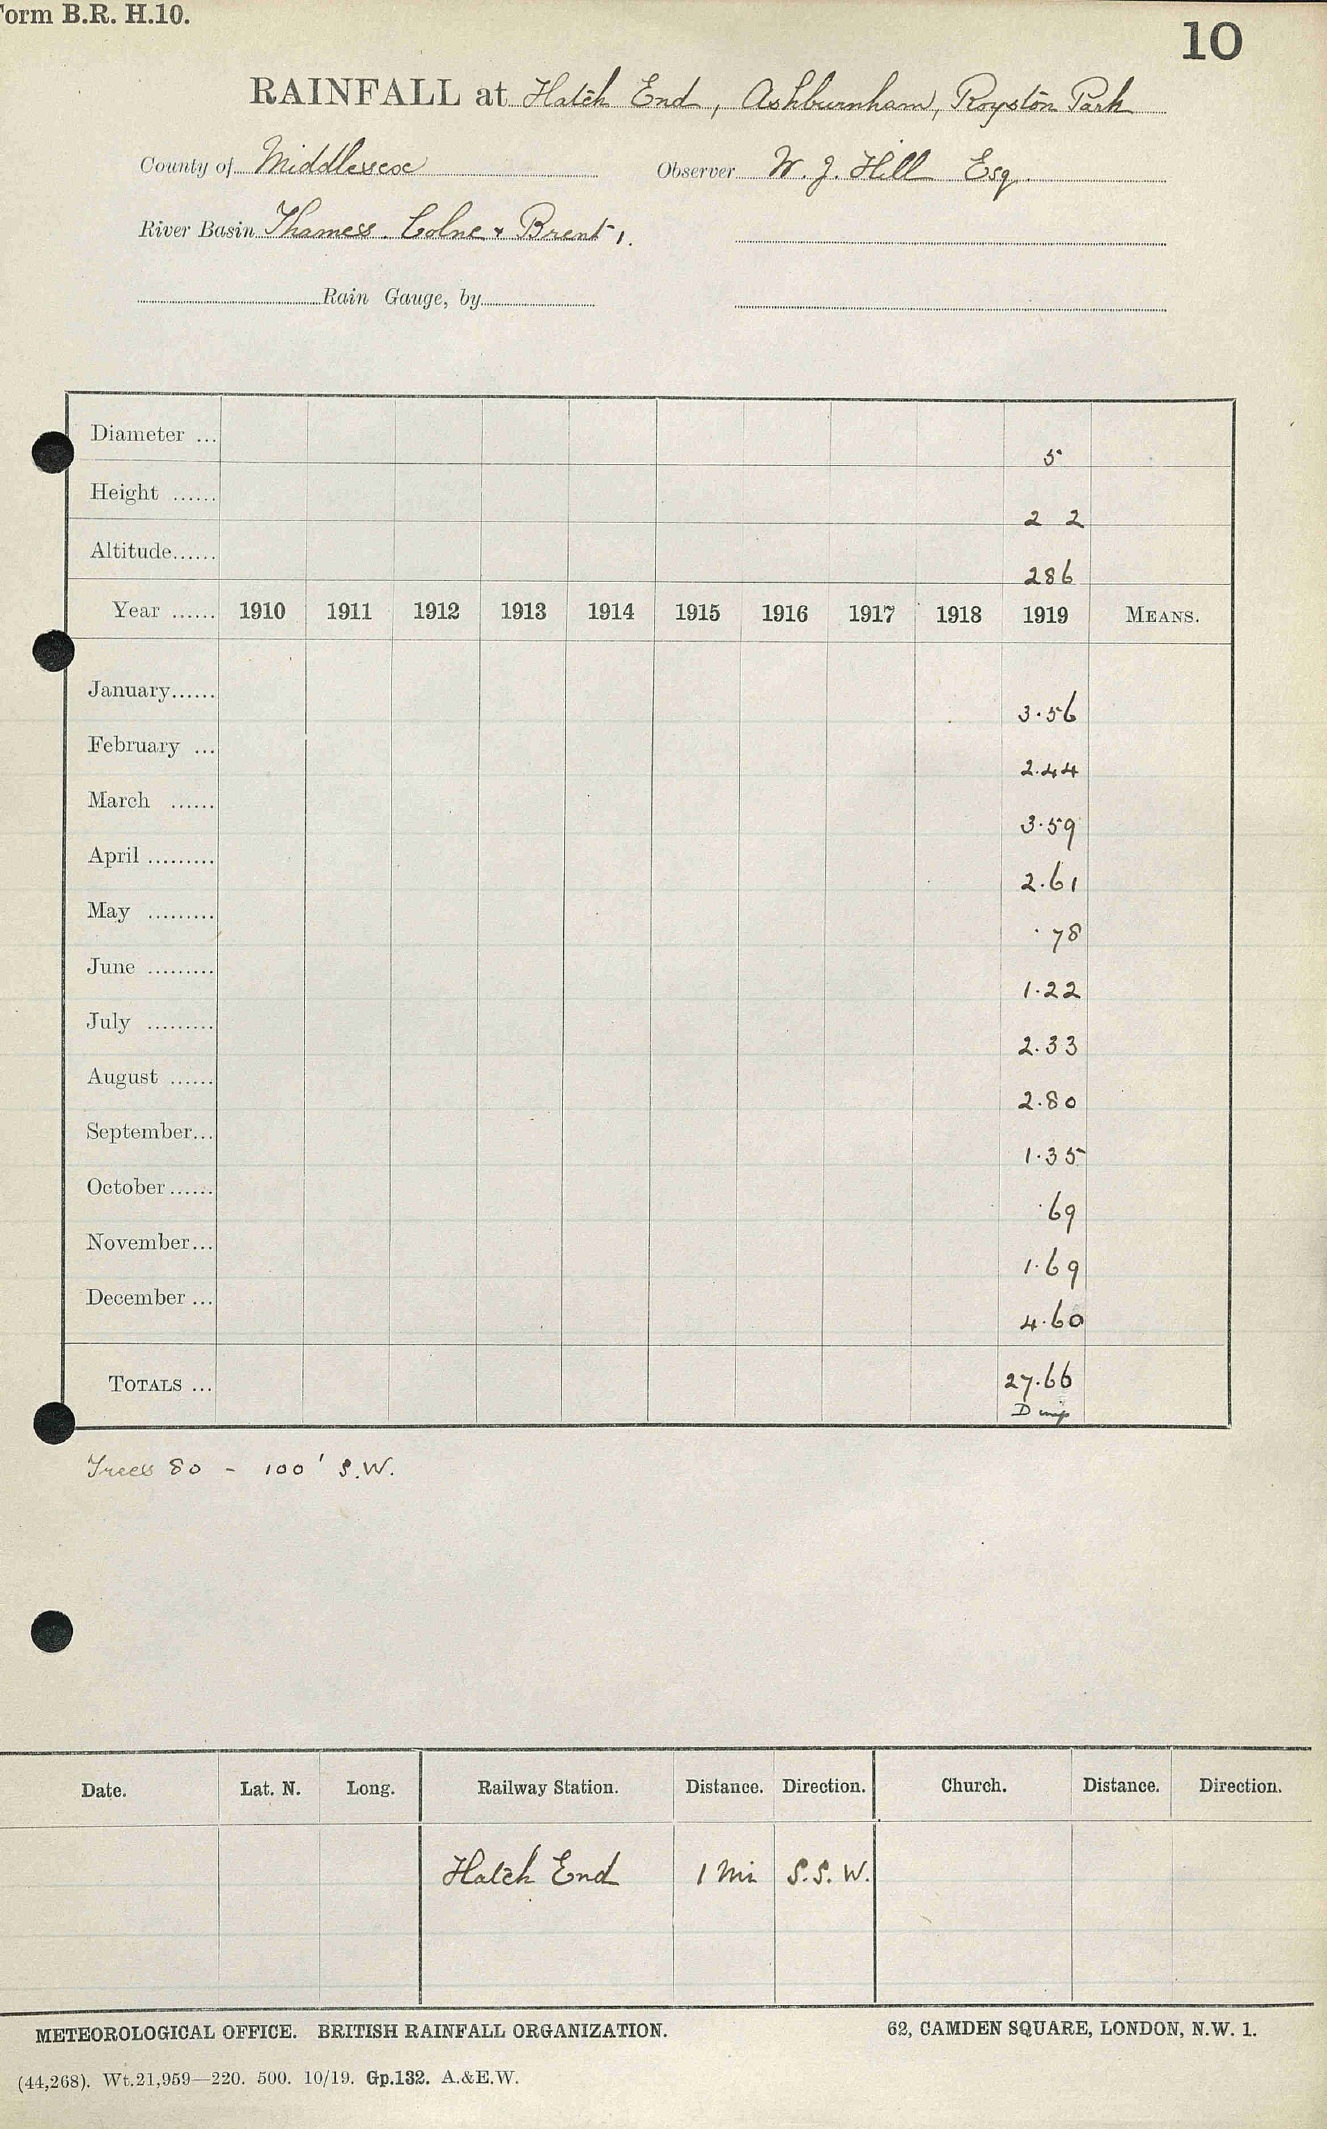 Form B.R. H.10.
10
RAINFALL at Hatch End, Ashburnham, Royston Park
County of Middlesex Observer W. J. Hill Esq.
River Basin Thames. Colne & Brent 1.
Rain Gauge, by
Diameter ... 5
Height ...... 2 2
Altitude...... 286
Year ...... 1910 1911 1912 1913 1914 1915 1916 1917 1918 1919 MEANS.
January...... 3.56
February ... 2.44
March ...... 3.59
April ......... 2.61
May ......... .78
June ......... 1.22
July ......... 2.33
August ...... 2.80
September... 1.35
October...... .69
November... 1.69
December ... 4.60
TOTALS ... 27.66
Trees 80 - 100' S.W.
Date. Lat. N. Long. Railway Station. Distance. Direction. Church. Distance. Direction.
Hatch End 1 Mi S.S.W.
METEOROLOGICAL OFFICE. BRITISH RAINFALL ORGANIZATION. 62, CAMDEN SQUARE, LONDON, N.W. 1.
(44,268). Wt.21,959—220. 500. 10/19. Gp.132. A.&E.W.